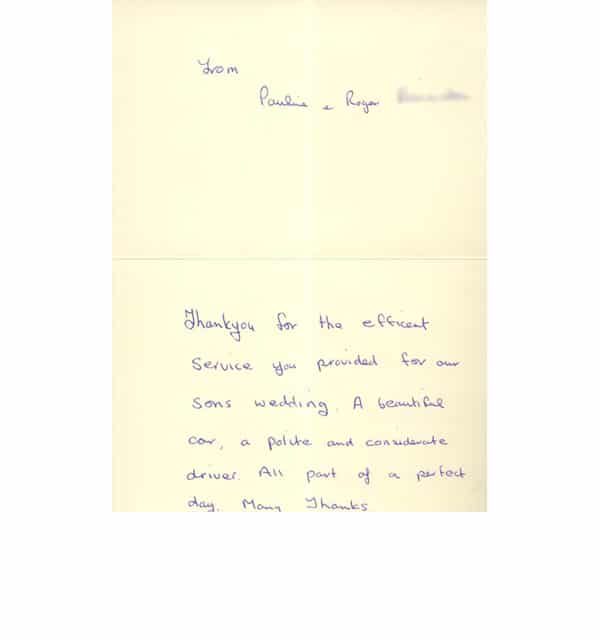 From
Pauline & Roger
Thankyou for the efficent
Service you provided for our
Sons wedding. A beautiful
car, a polite and considerate
driver. All part of a perfect
day. Many Thanks